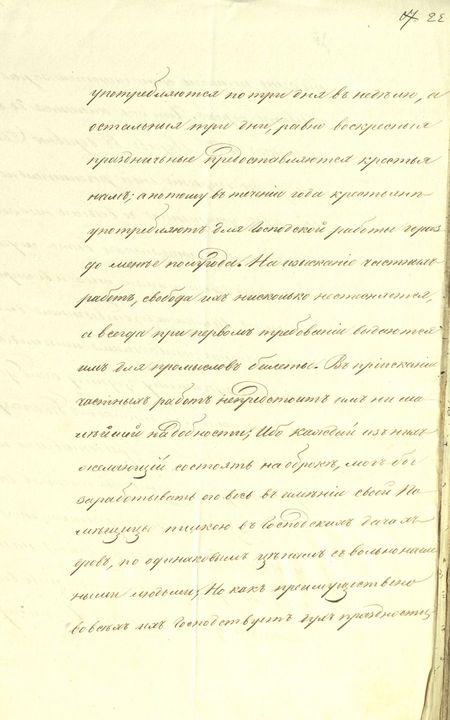 17 22
употребляются по три дня въ недѣлю, а
остальныя три дни, равно воскресныя
праздничныя предоставляются крестья
намъ; а потому въ теченіи года крестьянъ
употребляютъ для Господской работы гораз
до менѣе полугода. На изысканіе частныхъ
работъ, свобода ихъ нисколько не стѣсняется,
а всегда при первомъ требованіи выдаются
имъ для промысловъ билеты. Въ пріисканіи
частныхъ работъ не предстоитъ имъ ни ма
лѣйшей надобности; Ибо каждый изъ нихъ
желающій состоять на оброкѣ, могъ бы
заработывать его весь въ имѣніи своей По
мѣщицы пилкою въ Господскихъ дачахъ
дровъ, по одинаковымъ цѣнамъ съ вольнонаем
ными людьми; Но какъ преимущественно
во всѣхъ ихъ Господствуетъ духъ праздности,